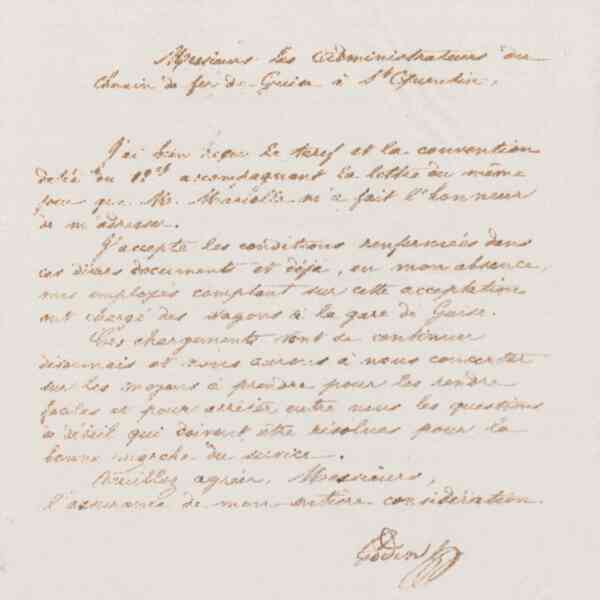 Messieurs les Administrateurs du
Chemin de fer de Guise à St Quentin,
J'ai bien reçu le tarif et la convention
datée du 19 ct accompagnant la lettre du même
jour que Mr. Mariolle m'a fait l'honneur
de m'adresser.
J'accepte les conditions renfermées dans
ces divers documents et déjà, en mon absence,
mes employés comptant sur cette acceptation
ont chargé des wagons à la gare de Guise.
Ces chargements vont se continuer
désormais et nous aurons à nous concerter
sur les moyens à prendre pour les rendre
faciles et pour arrêter entre nous les questions
de détail qui doivent être résolues pour la
bonne marche du service.
Veuillez agréer, Messieurs,
l'assurance de mon entière considération.
Godin